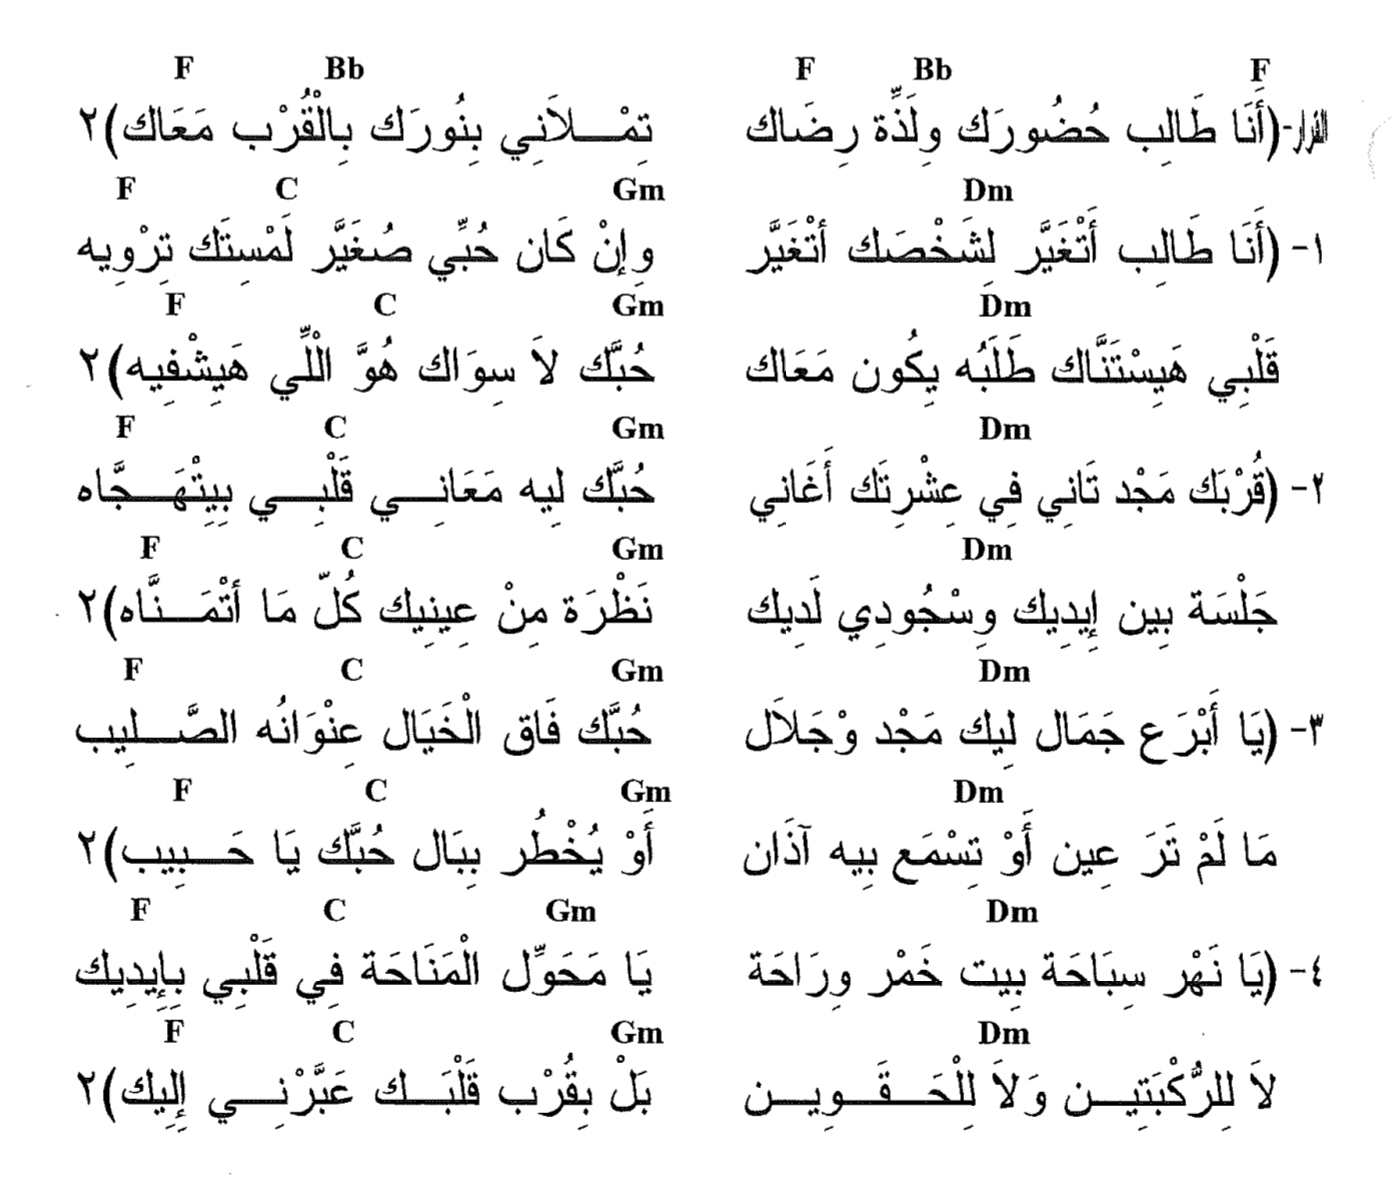 F Bb F F
القرار- (أَنَا طَالِب حُضُورَك ولَذِّة رِضَاك تِمْـــلاَنِي بِنُورَك بِالْقُرْب مَعَاك)٢
F C Gm Dm
١- (أَنَا طَالِب أَتْغَيَّر لِشَخْصَك أتْغَيَّر وِإِنْ كَان حُبِّي صُغَيَّر لَمْسِتَك تِرْوِيه
F C Gm Dm
قَلْبِي هَيِسْتَنَّاك طَلَبُه يِكُون مَعَاك حُبَّك لاَ سِوَاك هُوَّ الْلِّي هَيِشْفِيه)٢
F C Gm Dm
٢- (قُرْبَك مَجْد تَانِي فِي عِشْرِتَك أَغَانِي حُبَّك لِيه مَعَانِـــي قَلْبِـــي بِيِتْهَـــجَّاه
F C Gm Dm
جَلْسَة بِين إِيدِيك وِسْجُودِي لَدِيك نَظْرَة مِنْ عِينِيك كُلّ مَا أتْمَـــنَّاه)٢
F C Gm Dm
٣- (يَا أَبْرَع جَمَال لِيك مَجْد وْجَلاَل حُبَّك فَاق الْخَيَال عِنْوَانُه الصَّـــلِيب
F C Gm Dm
مَا لَمْ تَرَ عِين أَوْ تِسْمَع بِيه آذَان أَوْ يُخْطُر بِبَال حُبَّك يَا حَـــبِيب)٢
F C Gm Dm
٤- (يَا نَهْر سِبَاحَة بِيت خَمْر ورَاحَة يَا مَحَوِّل الْمَنَاحَة فِي قَلْبِي بِإِيدِيك
F C Gm Dm
لاَ لِلرُّكْبَتِيـــن وَلاَ لِلْحَـــقَـــوِيـــن بَلْ بِقُرْب قَلْبَـــك عَبَّرْنِـــي إِلِيك)٢